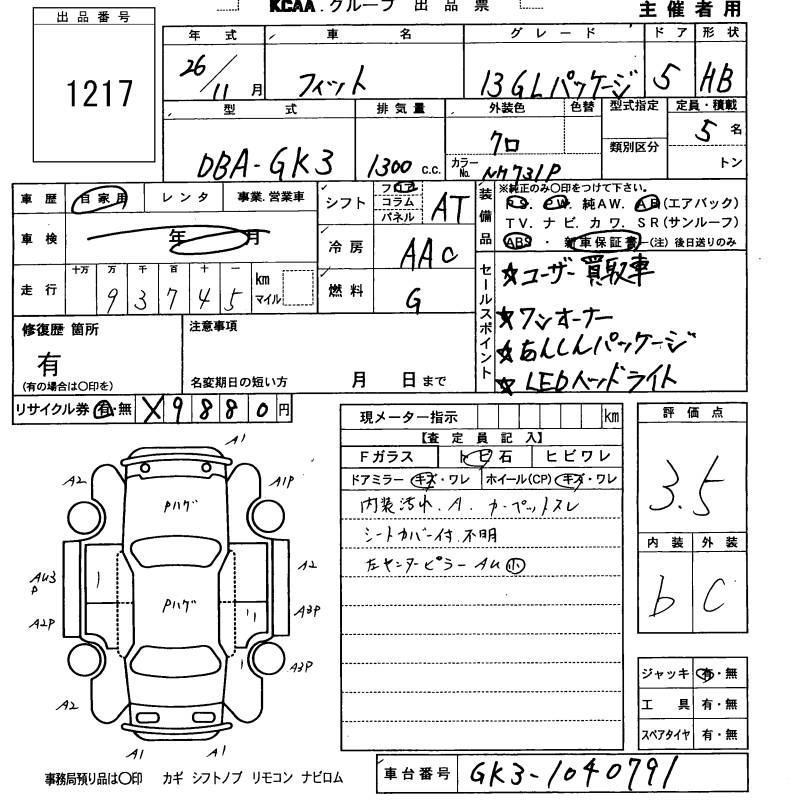 KCAA.グループ 出品票
主催者用
出品番号
1217
年式 車名 グレード ドア 形状
26/11月 フィット 13GLパッケージ 5 HB
型式 排気量 外装色 色替 型式指定 定員・積載
DBA-GK3 1300 c.c. クロ 類別区分 5名
カラーNo. NH731P トン
車歴 自家用 レンタ 事業.営業車
車検 年 月
走行 十万 万 千 百 十 一 km マイル
93745
シフト フロア コラム パネル AT
冷房 AAC
燃料 G
装備品 ※純正のみ○印をつけて下さい。
PS. PW. 純AW. AB(エアバック)
TV. ナビ. カワ. SR(サンルーフ)
ABS・新車保証書-(注)後日送りのみ
セールスポイント
☆ユーザー買取車
☆ワンオーナー
☆あんしんパッケージ
☆LEDヘッドライト
修復歴 箇所
有
(有の場合は○印を)
注意事項
名変期日の短い方 月 日まで
リサイクル券 有・無 X9880円
現メーター指示 km
【査定員記入】
Fガラス トビ石 ヒビワレ
ドアミラー キズ・ワレ ホイール(CP) キズ・ワレ
内装汚れ.A.カーペットスレ
シートカバー付.不明
左センターピラーAU小
評価点
3.5
内装 外装
b C
A1
A2 A1P
Pハゲ
AU3 P A2
Pハゲ
A2P A3P
A3P
A2
A1 A1
ジャッキ 有・無
工具 有・無
スペアタイヤ 有・無
事務局預り品は○印 カギ シフトノブ リモコン ナビロム
車台番号 GK3-1040791